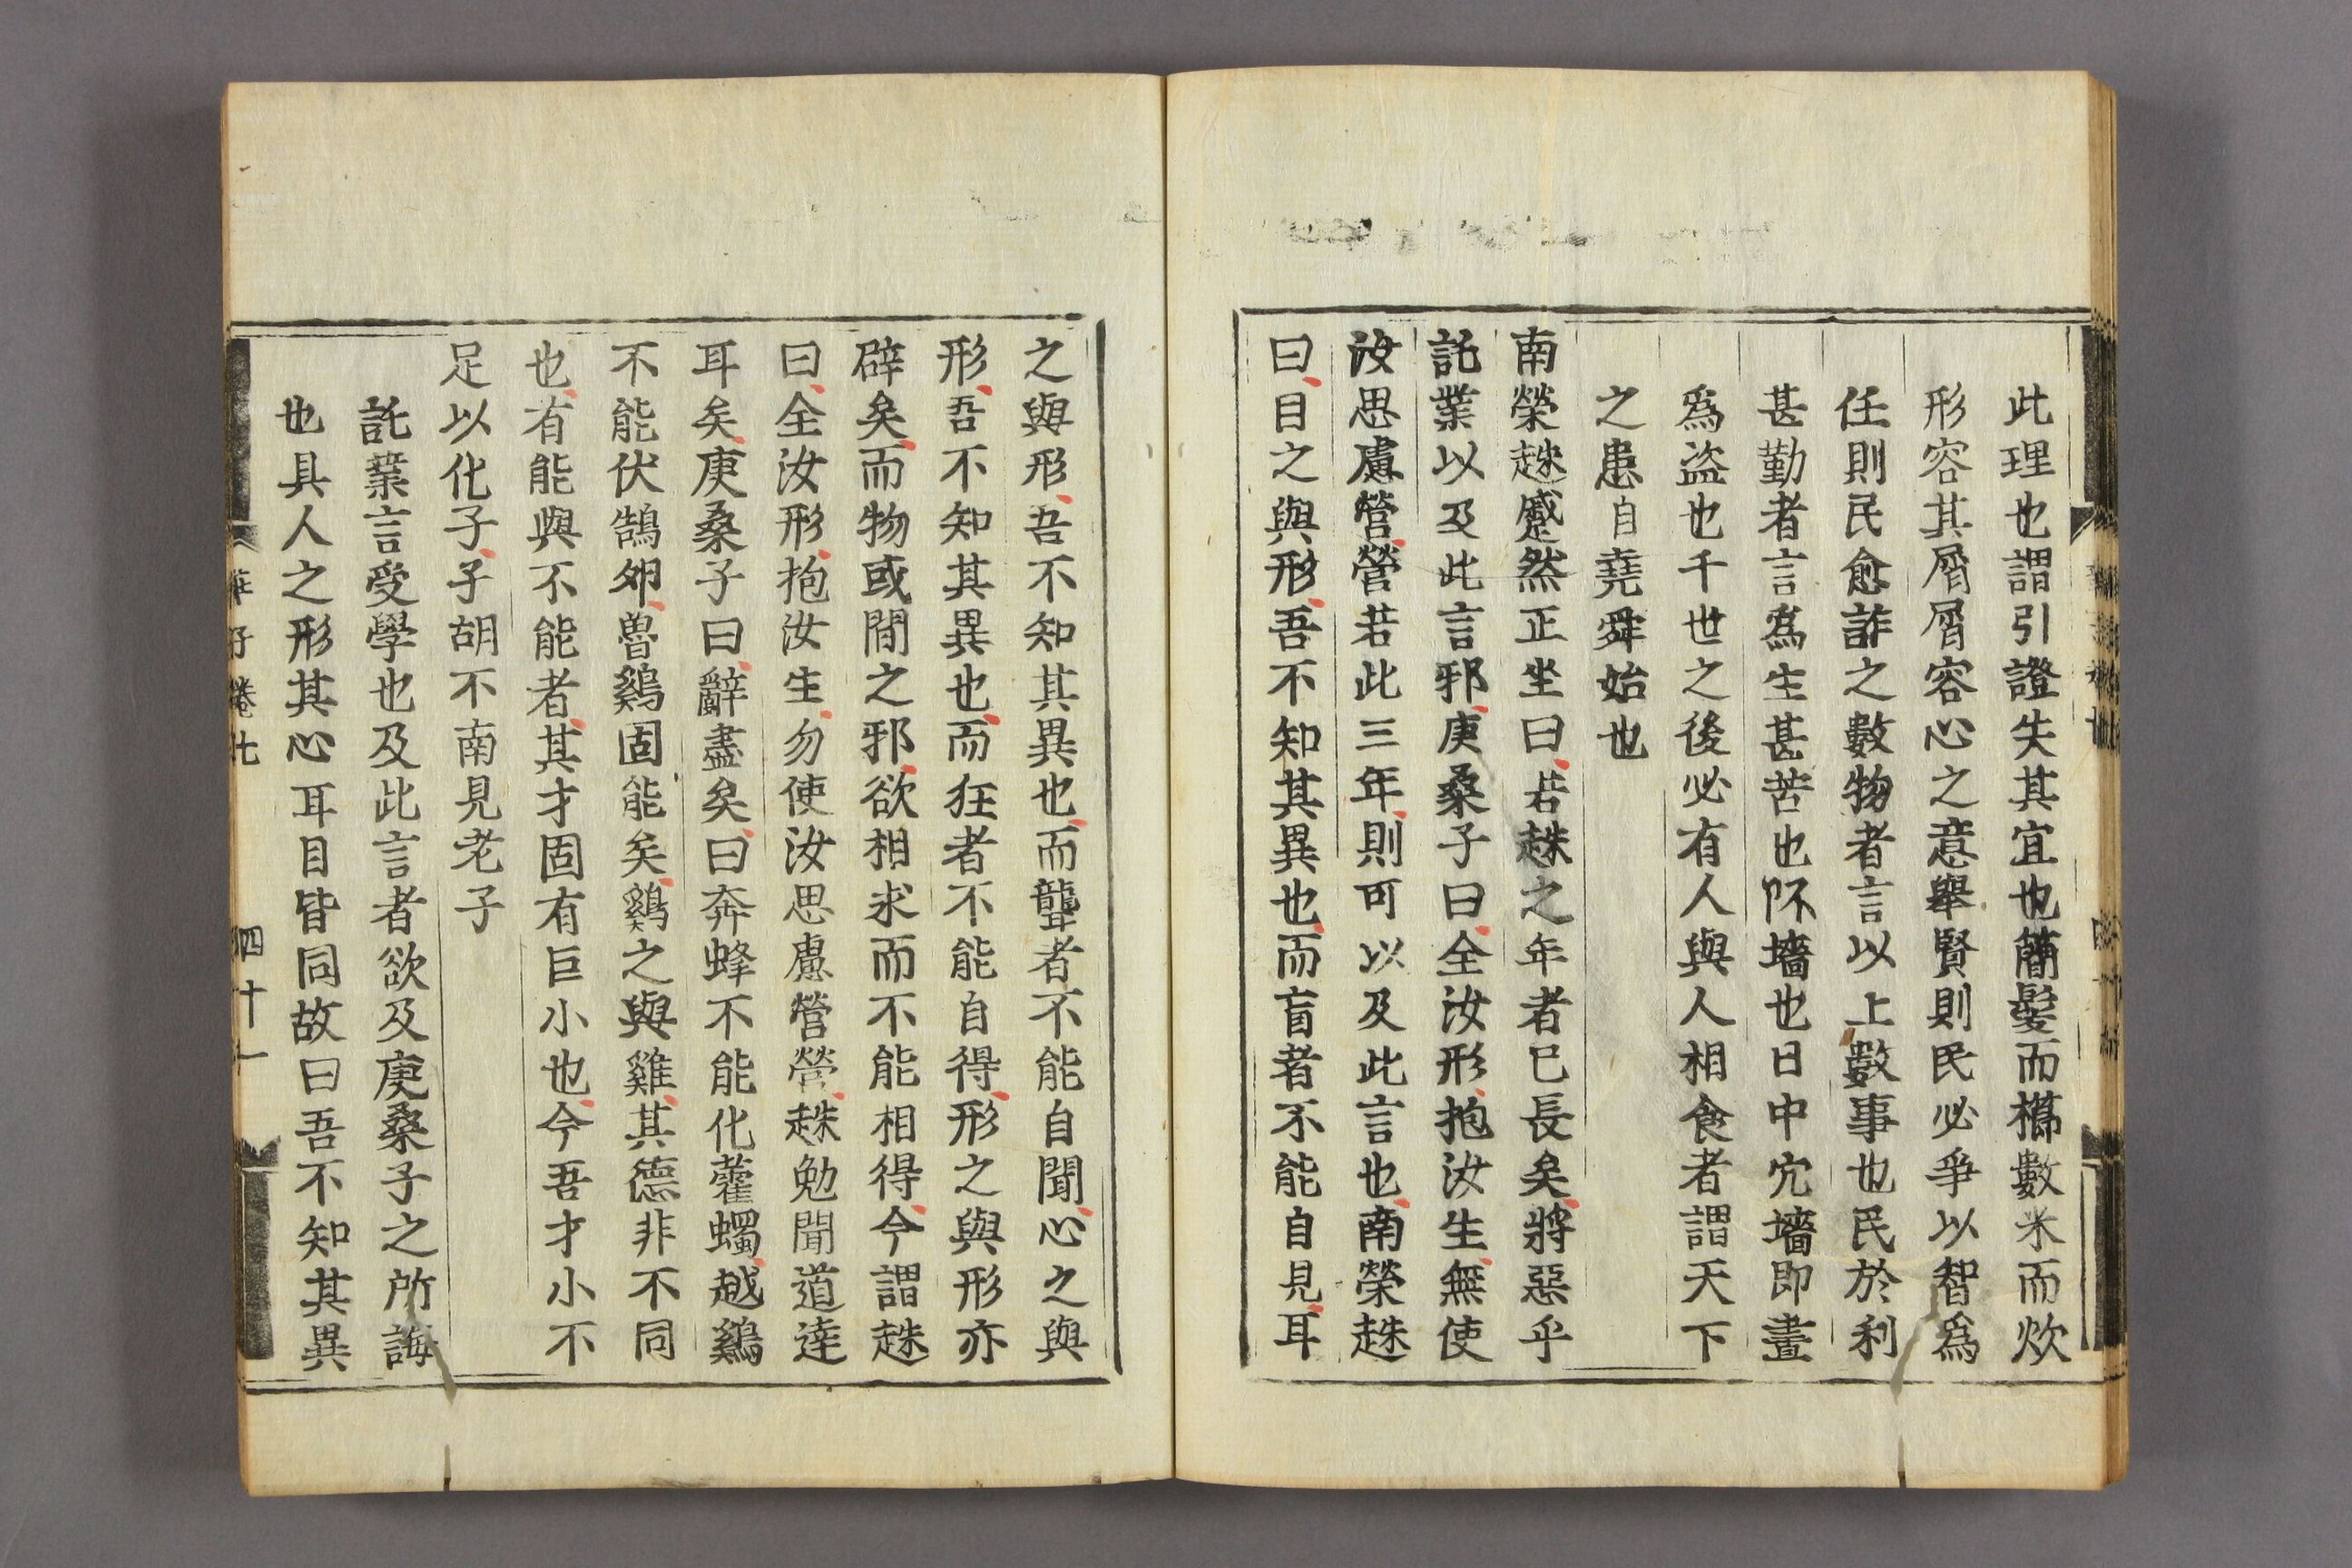 此理也謂引證失其宜也簡髮而櫛數米而炊
形容其屑屑容心之意舉賢則民必爭以智爲
任則民愈詐之數物者言以上數事也民於利
甚勤者言爲生甚苦也阫墻也日中穴墻即晝
爲盜也千世之後必有人與人相食者謂天下
之患自堯舜始也
南榮趎蹙然正坐曰若趎之年者已長矣將惡乎
託業以及此言邪庚桑子曰全汝形抱汝生無使
汝思慮營營若此三年則可以及此言也南榮趎
曰目之與形吾不知其異也而盲者不能自見耳
之與形吾不知其異也而聾者不能自聞心之與
形吾不知其異也而狂者不能自得形之與形亦
辟矣而物或間之邪欲相求而不能相得今謂趎
曰全汝形抱汝生勿使汝思慮營營趎勉聞道達
耳矣庚桑子曰辭盡矣曰奔蜂不能化藿蠋越鷄
不能伏鵠卵魯鷄固能矣鷄之與雞其德非不同
也有能與不能者其才固有巨小也今吾才小不
足以化子子胡不南見老子
託業言受學也及此言者欲及庚桑子之所誨
也具人之形其心耳目皆同故曰吾不知其異
莊子卷七 四十一